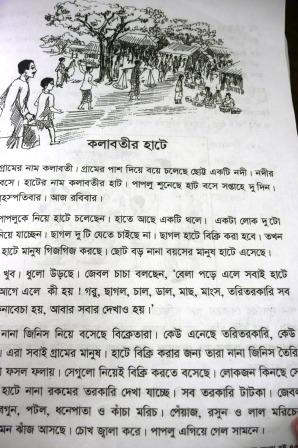 কলাবতীর হাটে
গ্রামের নাম কলাবতী। গ্রামের পাশ দিয়ে বয়ে চলেছে ছোট্ট একটি নদী। নদীর
বসে। হাটের নাম কলাবতীর হাট। পাপলু শুনেছে হাট বসে সপ্তাহে দু দিন।
বৃহস্পতিবার। আজ রবিবার।
পাপলুকে নিয়ে হাটে চলেছেন। হাতে আছে একটি থলে। একটা লোক দু টো
নিয়ে যাচ্ছেন। ছাগল দু টি যেতে চাইছে না। ছাগল হাটে বিক্রি করা হবে। তখন
হাটে মানুষ গিজগিজ করছে। ছোট বড় নানা বয়সের মানুষ হাটে এসেছে।
খুব। ধুলো উড়ছে। জেবল চাচা বলছেন, 'বেলা পড়ে এলে সবাই হাটে
আগে এলে কী হয়! গরু, ছাগল, চাল, ডাল, মাছ, মাংস, তরিতরকারি সব
কেনাবেচা হয়, আবার সবার দেখাও হয়।'
নানা জিনিস নিয়ে বসেছে বিক্রেতারা। কেউ এনেছে তরিতরকারি, কেউ
। এরা সবাই গ্রামের মানুষ। হাটে বিক্রি করার জন্য তারা নানা জিনিস তৈরি
ফসল ফলায়। সেগুলো নিয়েই বিক্রি করতে বসেছে। লোকজন কিনছে সে
হাটে নানা রকমের তরকারি দেখা যাচ্ছে। সব তরকারি টাটকা। জেবল
বেগুন, পটল, ধনেপাতা ও কাঁচা মরিচ। পেঁয়াজ, রসুন ও লাল মরিচে
মন ঝাঁজ আসছে। চোখ জ্বালা করে। পাপলু এগিয়ে গেল সামনে।